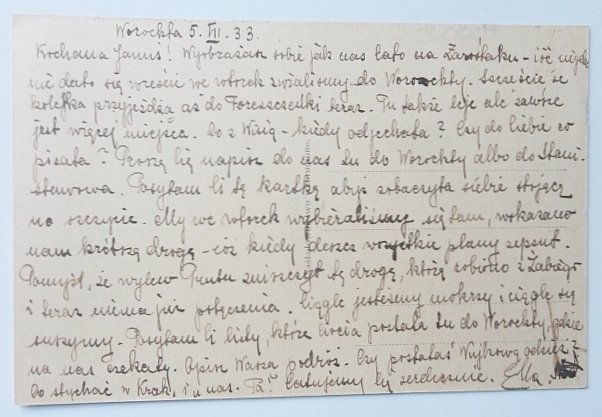 Worochta 5. VII. 33.
Kochana Janiś! Wyobrażasz sobie jak nas lało na Zaroślaku - iść nigdzie
nie dało się wreście we wtorek zwialiśmy do Worochty. Szczęście że
kolejka przyjeżdża aż do Foreszczenki teraz. Tu także leje ale zawsze
jest więcej miejsca. Co z Wisią - kiedy odjechała? Czy do Ciebie co
pisała? Proszę Cię napisz do nas tu do Worochty albo do Stani-
sławowa. Posyłam Ci tę kartkę abyś zobaczyła siebie stojącą
na szczycie. My we wtorek wybieraliśmy się tam, wskazano
nam krótszą drogę - cóż kiedy deszcz wszystkie plany zepsuł.
Pomyśl, że wylew Prutu zniszczył tę drogę, którą robiono z Żabiego
i teraz niema już połączenia. Ciągle jesteśmy mokrzy i ciągle się
suszymy. Posyłam Ci listy, które ciocia posłała tu do Worochty, gdzie
na nas czekały. Opisz Waszą podróż. Czy posłałaś
Co słychać w Krak. i u nas. Pa! Całujemy Cię serdecznie. Ella.